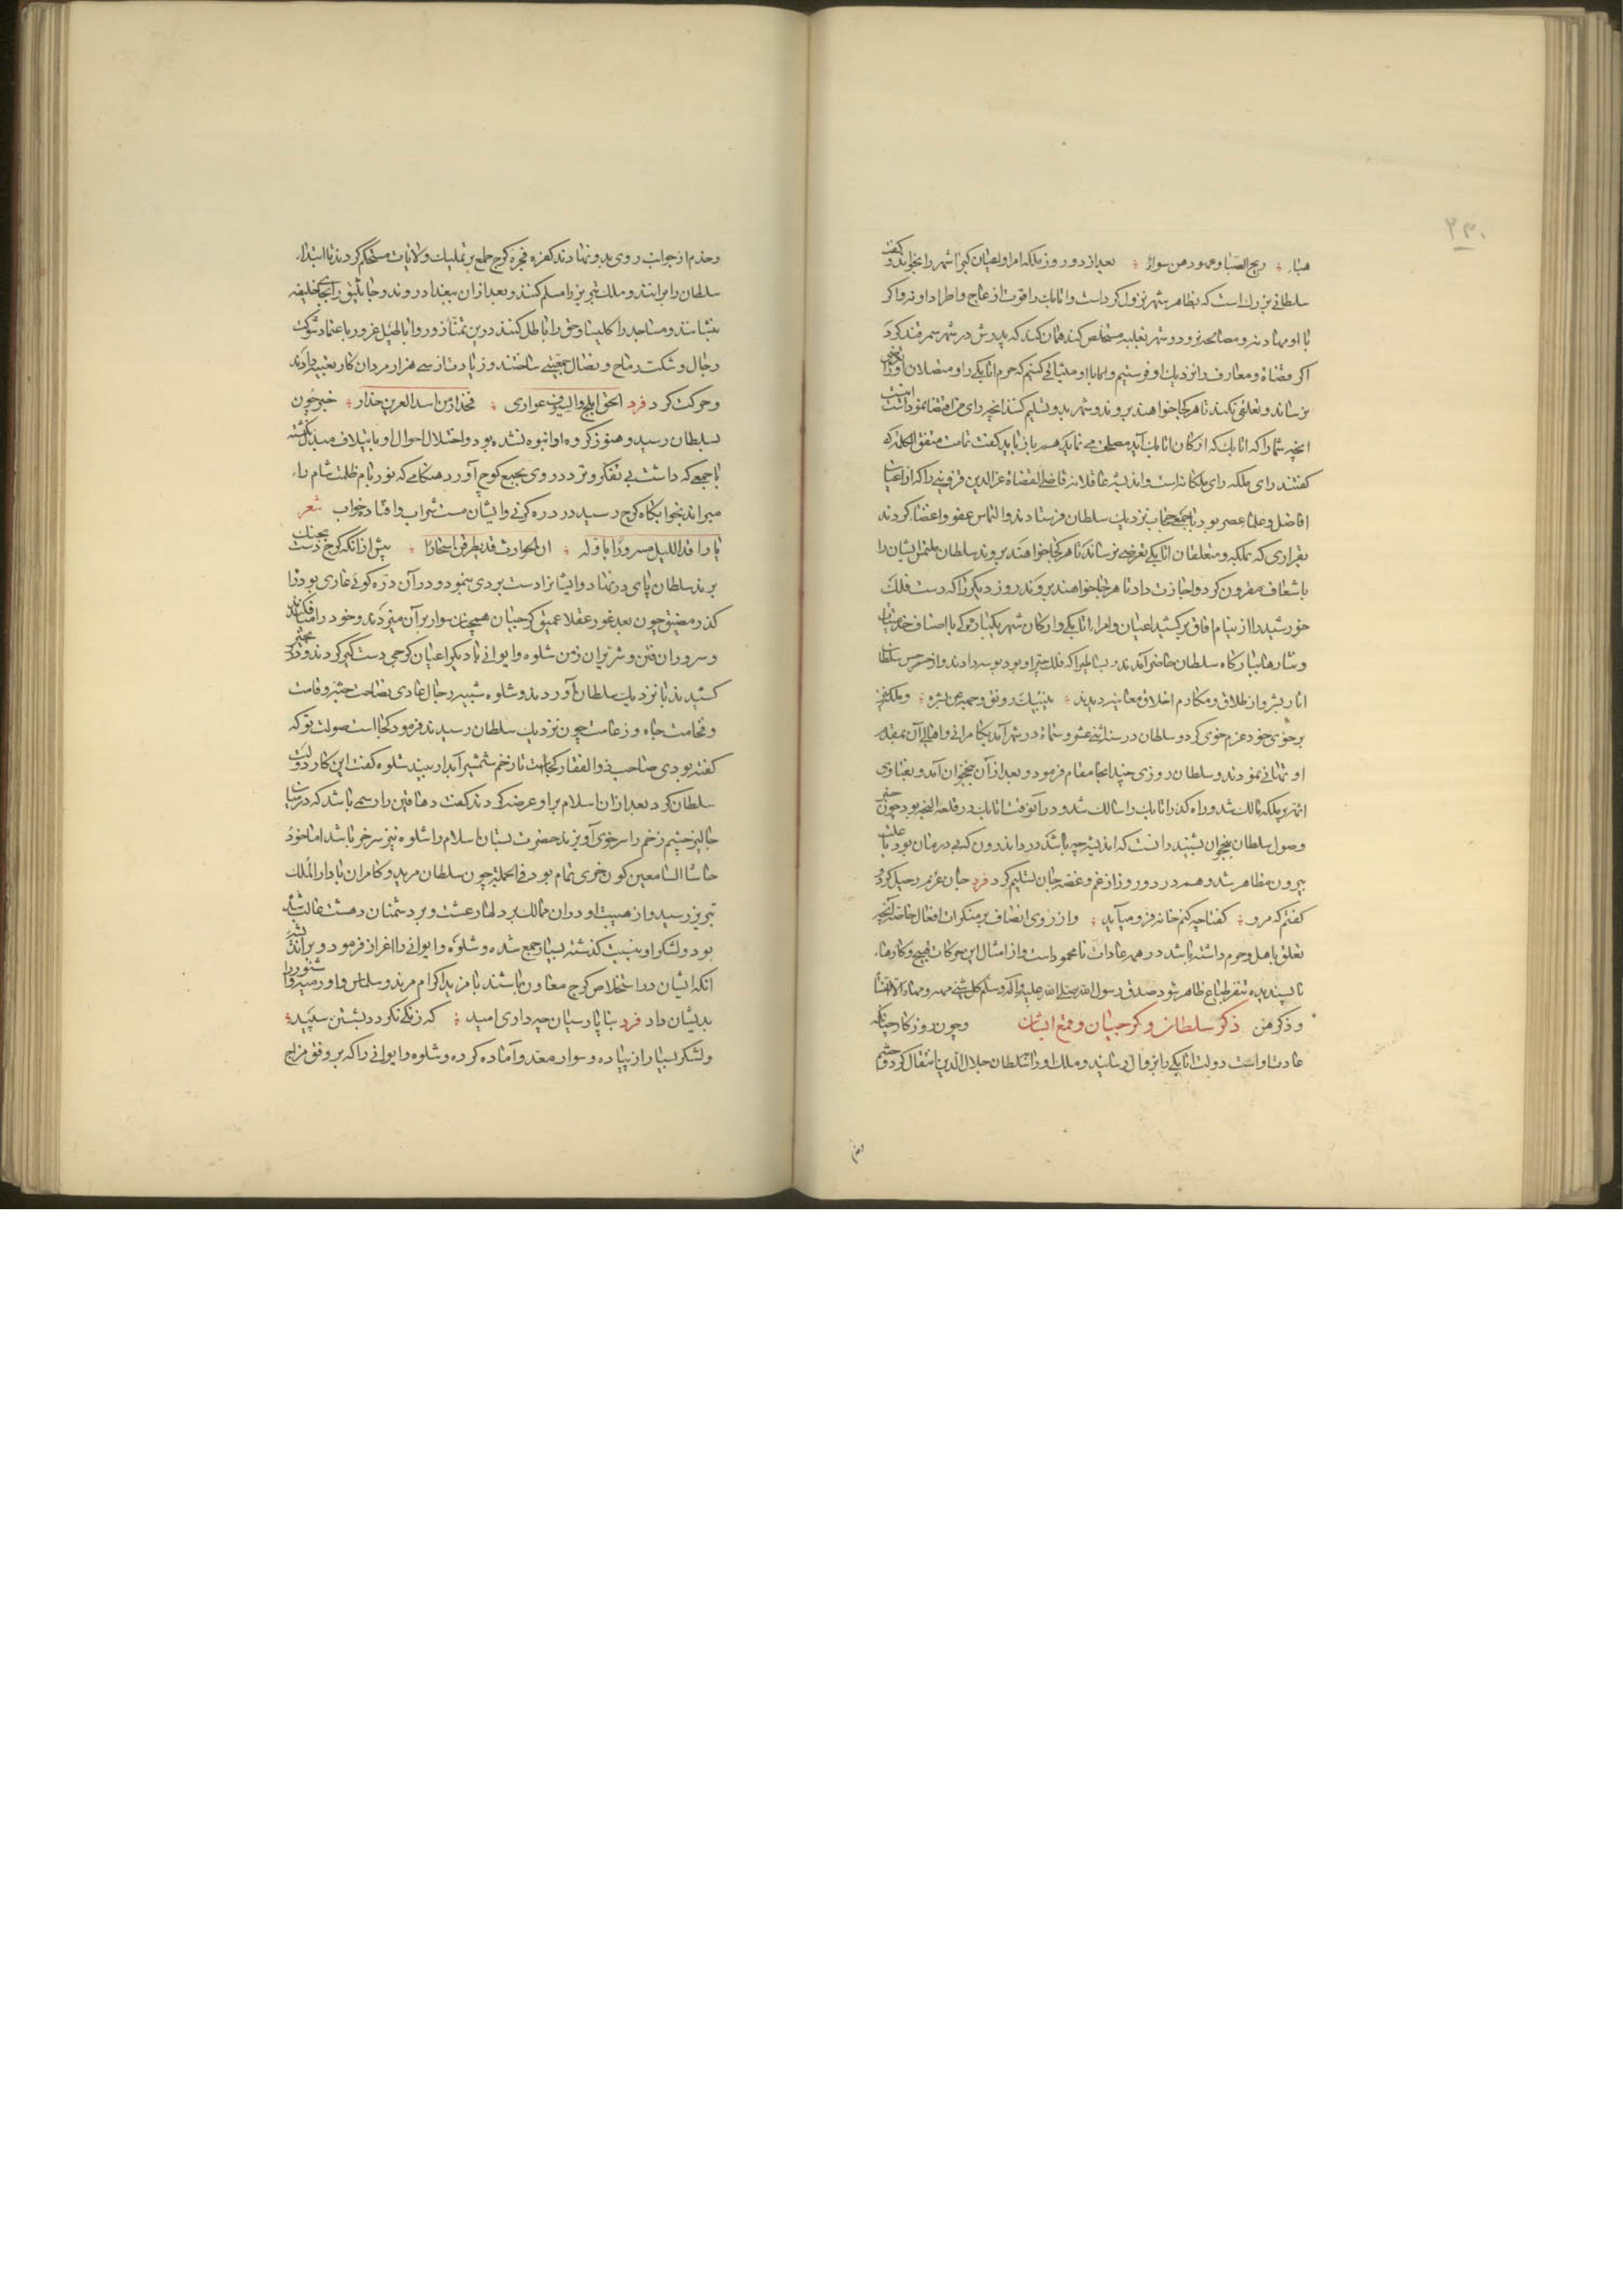 ۲۳۰
هباء ریح الصبا وعهودهن سواء بعد از دو روز ملکه امرا واعیان کبرا شهر را بخواند و کفت
سلطانی بزرك است که بظاهر شهر نزول کرداست واتابك را قوت ازعاج واطراد او نه و اکر
با او مهادنه و مصالحه نرود و شهر بغلبه مستخلص کند همان کند که پدرش در شهر سمرقند کرد
اکر قضاة ومعارف را نزدیك او فرستیم و با او میثاقی کنیم که حرم اتابکی را و متصلان او را
نرساند و تعلقی نکند تا هر کجا خواهند بروند و شهر بدو تسلیم کنند
انچه شما را که ارکان اتابك آید مصلحت می نماید هم باز باید کفت تمامت متفق الکلمة که
کفتند رای ملکه رای ملکانه است واندیشه عاقلانه قاضی القضاة عز الدین قزوینی را که از اعیان
افاضل وعلماء عصر بود با جمع حجاب نزدیك سلطان فرستادند والتماس عفو واغضا کردند
بقراری که بملکه و متعلقان اتابکی تعرضی نرساند تا هر کجا خواهند بروند سلطان ملتمس ایشان را
باسعاف مقرون کرد و اجازت داد تا هر کجا خواهند بروند روز دیکر را که دست فلك
خورشید را از نیام افاق برکشید اعیان وامراء اتابکی وارکان شهر یکبارکی با اصناف خدمتیان
و نثارها ببارکاه سلطان حاضر آمدند و بساطی را که فلك چتر او بود بوسه دادند و از
اثار بشر و انطلاق و مکارم اخلاق معاینه دیدند ینبیك رونق وجهه عن بشره و ملکه نیز
بر خوی خود عزم خوی کرد و سلطان در سنه اثنی عشر وستمائة در شهر آمد بکامرانی واهالی آن بمقدم
او تهانی نمودند و سلطان روزی چند انجا مقام فرمود و بعد از آن بنخجوان آمد و بفتاوی
ائمه بر ملکه مالك شد و راه کذر اتابك را سالك شد و در آن وقت اتابك در قلعه النجه بود چون خبر
وصول سلطان بنخجوان بشنید دانست که اندیشه چه باشد درد اندرون که بی درمان بود با علت
بیرون مظاهر شد و هم در دو روز از غم و غصه جان تسلیم کرد فرد جان عزم رحیل کرد
کفتم که مرو کفتا چه کنم خانه فرو میآید و از روی انصاف بر منکرات افعال خاصه آنچه
تعلق باهل و حرم داشته باشد در همه عادات نامحمود است و از امثال این حرکات قبیح و کارهاء
ناپسندیده تنفر طباع ظاهر شود صدق رسول الله صلی الله علیه وآله وسلم کل شئ مهه ومهاه الا النساء
و ذکرهن ذکر سلطان و کرجیان و قمع ایشان و چون روزکار چنانکه
عادت اوست دولت اتابکی را بزوال رسانید و ملك او را سلطان جلال الدین انتقال کرد و حشم
وحذم از جوانب روی بدو نهادند کفره فجره کرج طمع بر تملیك ولایات مستحکم کردند تا ابتدا
سلطان را برانند و ملك تبریز را مسلم کنند و بعد از آن ببغداد روند و جاثلیق را بجای خلیفه
بنشانند و مساجد را کلیسا و حق را باطل کنند درین تمناء زور واباطیل غرور باعتماد شوکت
رجال و شکت رماح و نصال جمعیتی ساختند و زیادت از سی هزار مردان کار تعبیه دادند
و حرکت کرد فرد الحق ابلج والسیوف عواری فحذار من اسد العرین حذار خبر چون
بسلطان رسید و هنوز کروه او انبوه نشده بود واختلال احوال او بایتلاف مبدل نکشته
با جمعی که داشت بی تفکر و تردد روی بجمع کرج آورد هنکامی که نور بام ظلمت شام را
میراند بخوابکاه کرج رسید در دره کرنی و ایشان مست شراب و افتاده خواب شعر
یا راقد اللیل مسرورا باوله ان الحوادث قد یطرقن اسحارا پیش از آنکه کرج دست بجنك
برند سلطان پای در نهاد وایشانرا دست بردی بنمود و در آن دره کوئی غاری بود تا
کذر مضیق چون بعد غور عقلا عمیق کرجیان همچنان سوار بر آن میزدند و خود را می افکندند
و سروران فتن و شریران زمن شلوه و ایوانی با دیکر اعیان کرجی دست کیر کردند و در زنجیر
کشیدند تا نزدیك سلطان آوردند و شلوه شبیه رجال عادی بضخامت جثه و قامت
و فخامت جاه و زعامت چون نزدیك سلطان رسیدند فرمود کجا است صولت تو که
کفته بودی صاحب ذوالفقار کجاست تا زخم شمشیر آبدار بیند شلوه کفت این کار دولت
سلطان کرد بعد از آن اسلام بر او عرضه کردند کفت دهاقین را رسمی باشد که در میان
جالیز چشم زخم را سر خری آویزند حضرت بستان اسلام را شلوه نیز سر خر باشد اما خود
حاشا السامعین کون خری تمام بود فی الجمله چون سلطان مرید و کامران با دار الملك
تبریز رسید و از هیبت او در آن ممالك بر دلها رعشت و بر دشمنان دهشت غالب شد
بود و لشکر او بنسبت کذشته بسیار جمع شده و شلوه و ایوانی را اعزاز فرمود و بر اندیشه
انکه ایشان در استخلاص کرج معاون باشند بمزید اکرام مرند و سلماس و اورمیه و اشنو را
بدیشان داد فرد بناپارسیان چه داری امید که زنکی نکردد بشستن سپید
و لشکر بسیار از پیاده و سوار معد و آماده کرده و شلوه و ایوانی را که بر وفق مزاج